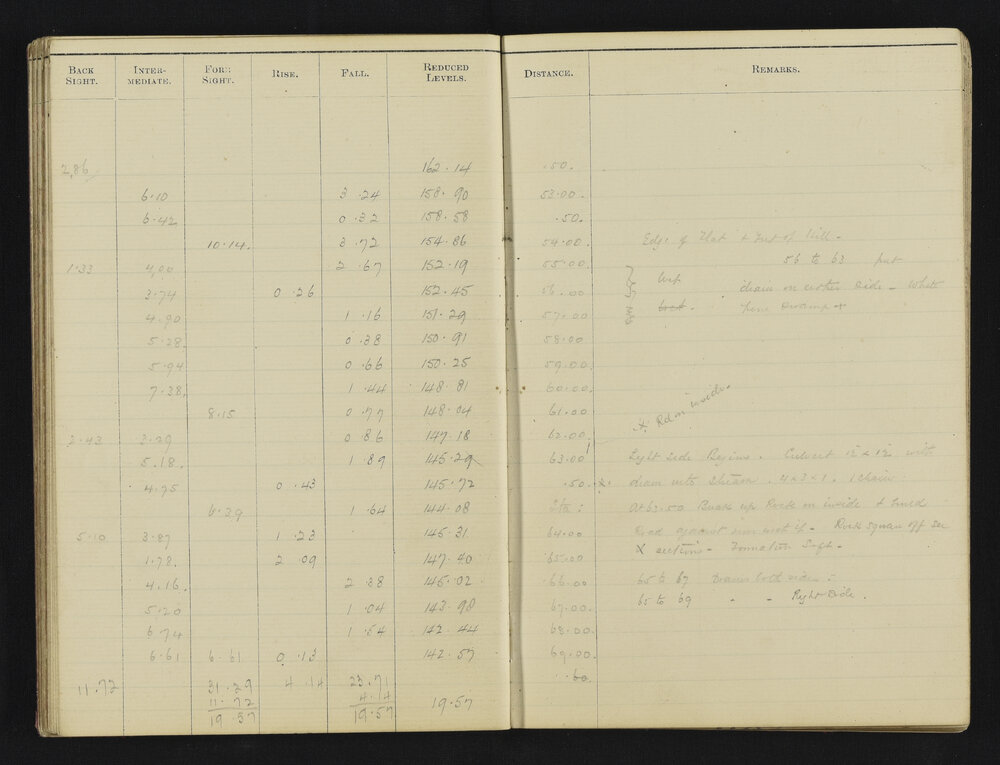 BACK SIGHT. INTER-MEDIATE. FORE SIGHT. RISE. FALL. REDUCED LEVELS. DISTANCE. REMARKS.
2.86 162.14 .50.
6.10 3.24 158.90 53.00.
6.42 0.32 158.58 .50.
10.14. 3.72 154.86 54.00. Edge of Flat + foot of Hill -
1.33 4.00 2.67 152.19 55.00. 56 to 63 put
3.74 0.26 152.45 56.00 drain on other side - White
4.90 1.16 151.29 57.00 Pine Swamp x
5.28 0.38 150.91 58.00
5.94 0.66 150.25 59.00.
7.38. 1.44 148.81 60.00.
8.15 0.77 148.04 61.00 x Rd on inside.
2.43 3.29 0.86 147.18 62.00
5.18. 1.89 145.29 63.00 Right side Begins. Culvert 12 x 12 with
4.75 0.43 145.72 .50. x. drain into stream. 4 x 3 x 1. 1 chain
6.39 1.64 144.08 At 63.50 Break up Rock on inside +
5.10 3.87 1.23 145.31 64.00 Road Rock square off see
1.78. 2.09 147.40 65.00 X sections - Formation Soft -
4.16. 2.38 145.02 66.00 65 to 67 Drains both sides -
5.20 1.04 143.98 67.00. 65 to 69 - - Right Side.
6.74 1.54 142.44 68.00.
6.61 6.61 0.13 142.57 69.00.
11.72 31.29 4.14 23.71 .60.
11.72 4.14 19.57
19.57 19.57